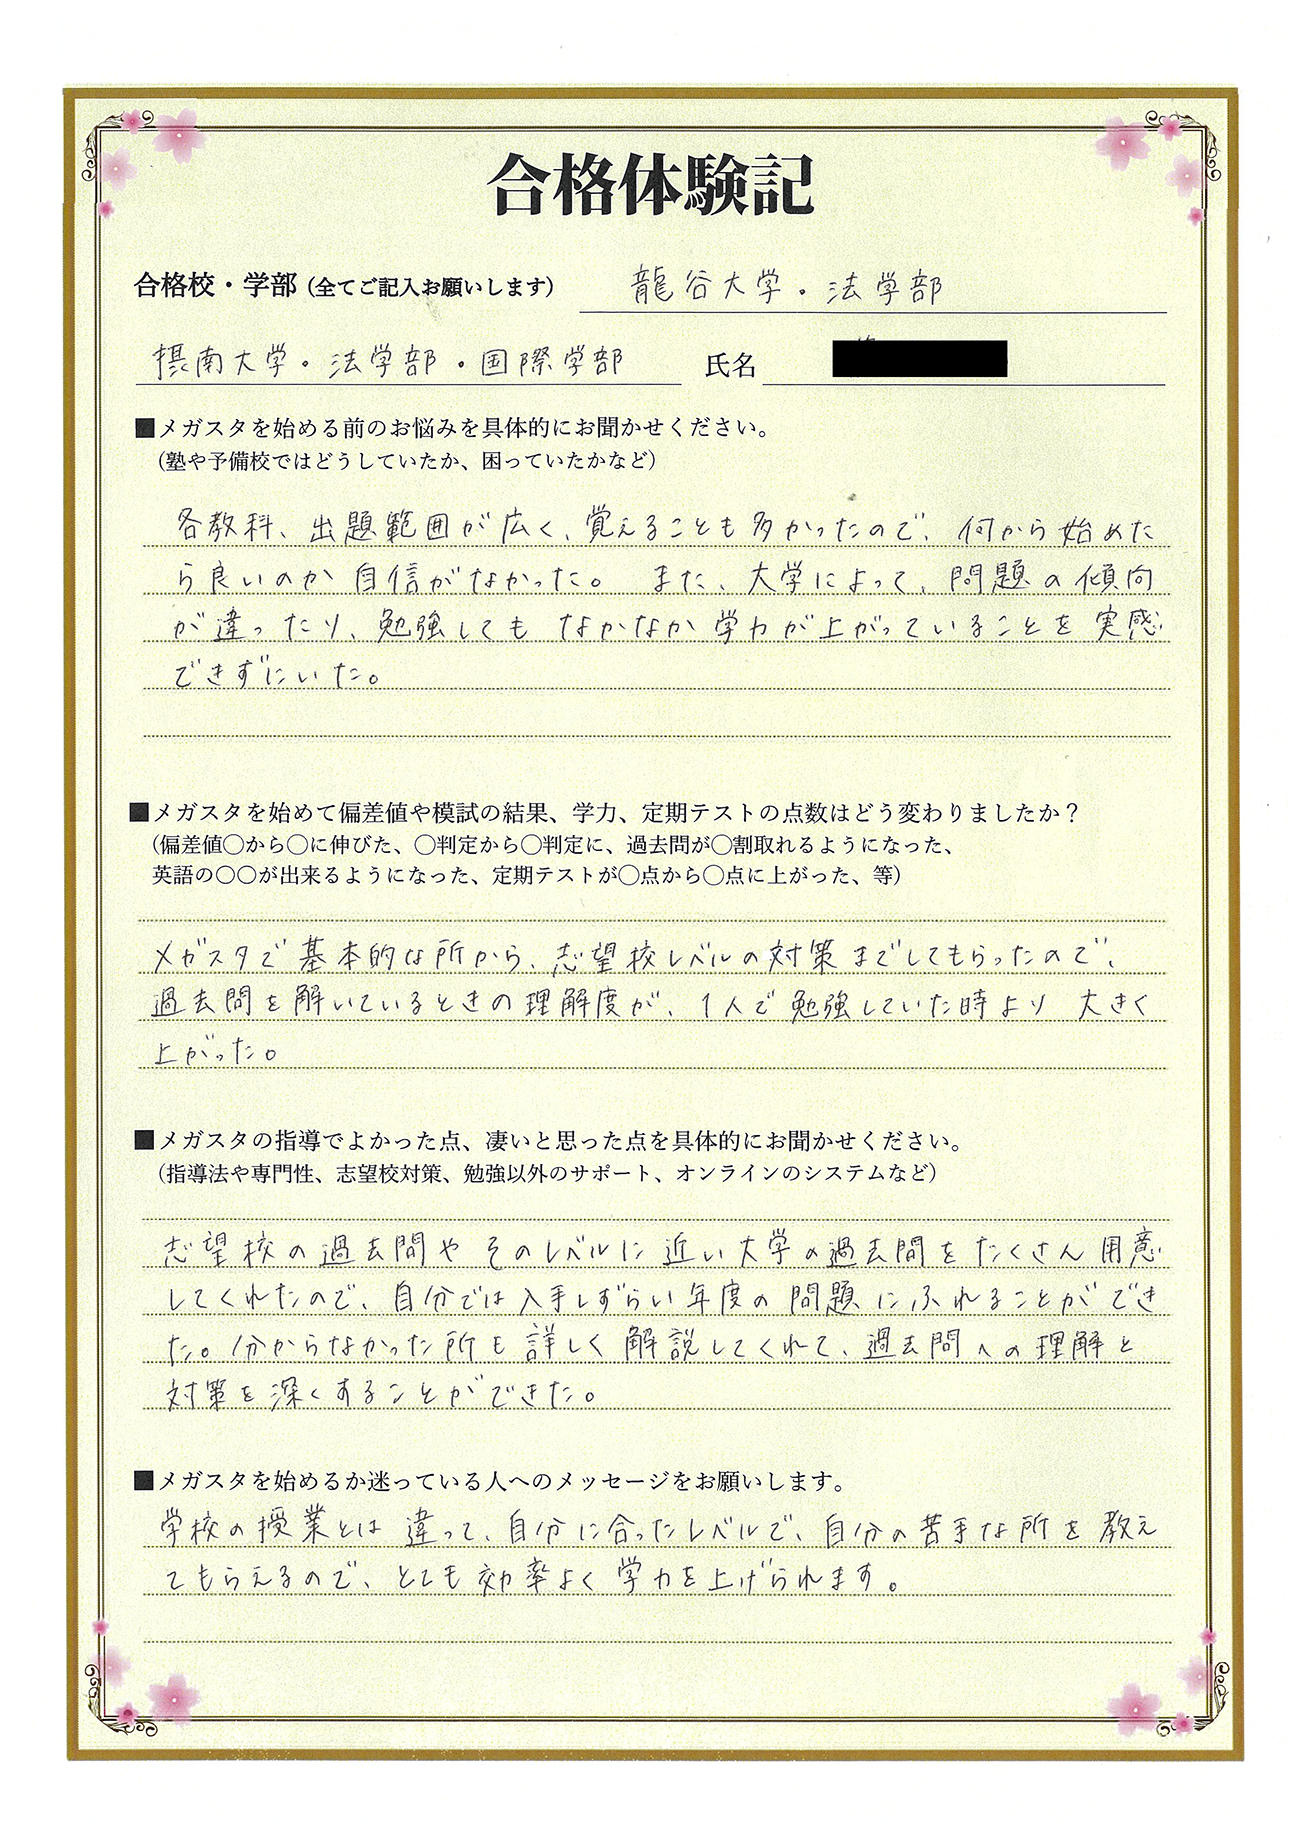 合格体験記
合格校・学部（全てご記入お願いします） 龍谷大学・法学部
摂南大学・法学部・国際学部 氏名
■メガスタを始める前のお悩みを具体的にお聞かせください。
（塾や予備校ではどうしていたか、困っていたかなど）
各教科、出題範囲が広く、覚えることも多かったので、何から始めた
ら良いのか自信がなかった。 また、大学によって、問題の傾向
が違ったり、勉強しても なかなか学力が上がっていることを実感
できずにいた。
■メガスタを始めて偏差値や模試の結果、学力、定期テストの点数はどう変わりましたか？
（偏差値〇から〇に伸びた、〇判定から〇判定に、過去問が〇割取れるようになった、
英語の〇〇が出来るようになった、定期テストが〇点から〇点に上がった、等）
メガスタで基本的な所から、志望校レベルの対策までしてもらったので、
過去問を解いているときの理解度が、1人で勉強していた時より 大きく
上がった。
■メガスタの指導でよかった点、凄いと思った点を具体的にお聞かせください。
（指導法や専門性、志望校対策、勉強以外のサポート、オンラインのシステムなど）
志望校の過去問やそのレベルに近い大学の過去問をたくさん用意
してくれたので、自分では入手しずらい年度の問題にふれることができ
た。分からなかった所も詳しく解説してくれて、過去問への理解と
対策を深くすることができた。
■メガスタを始めるか迷っている人へのメッセージをお願いします。
学校の授業とは違って、自分に合ったレベルで、自分の苦手な所を教え
てもらえるので、とても効率よく学力を上げられます。